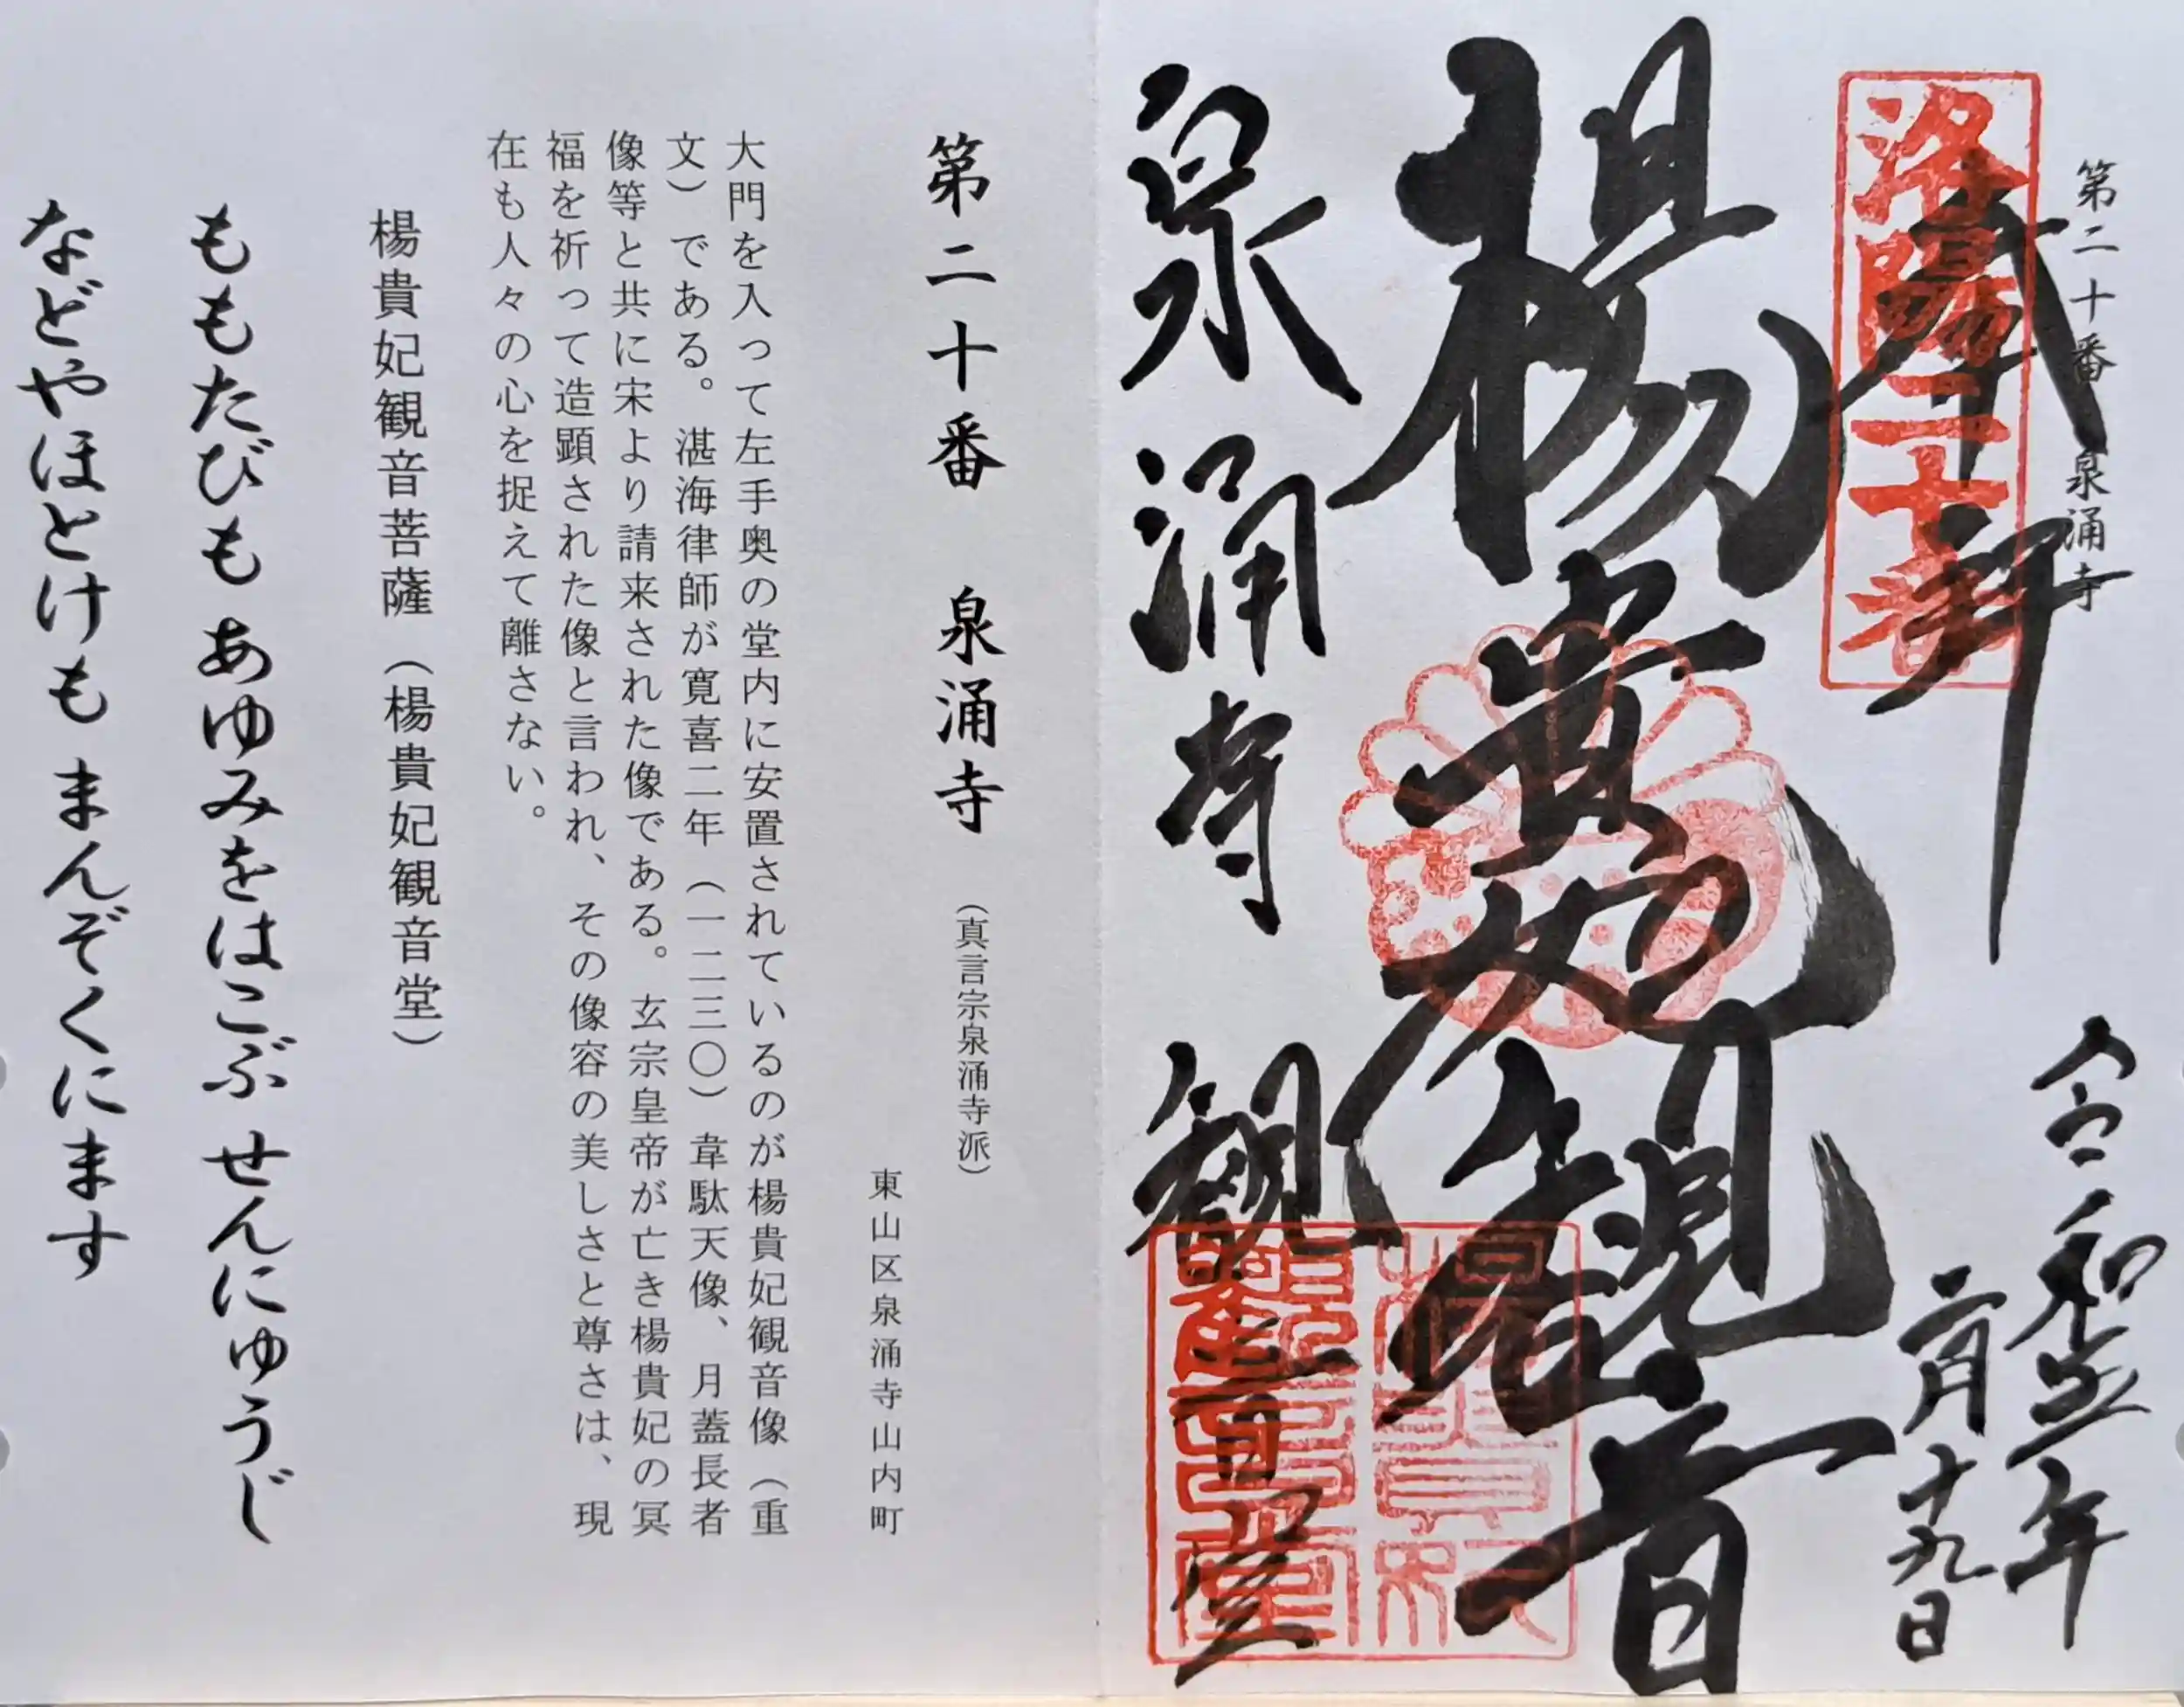 第二十番 泉涌寺
洛陽二十番
奉拝
令和五年
二月十九日
楊貴妃観音
泉涌寺 観音堂
楊貴妃
観音堂
第二十番 泉涌寺 (真言宗泉涌寺派)
東山区泉涌寺山内町
大門を入って左手奥の堂内に安置されているのが楊貴妃観音像(重
文)である。湛海律師が寛喜二年(一二三〇)韋駄天像、月蓋長者
像等と共に宋より請来された像である。玄宗皇帝が亡き楊貴妃の冥
福を祈って造顕された像と言われ、その像容の美しさと尊さは、現
在も人々の心を捉えて離さない。
楊貴妃観音菩薩(楊貴妃観音堂)
ももたびも あゆみをはこぶ せんにゅうじ
などやほとけも まんぞくにます